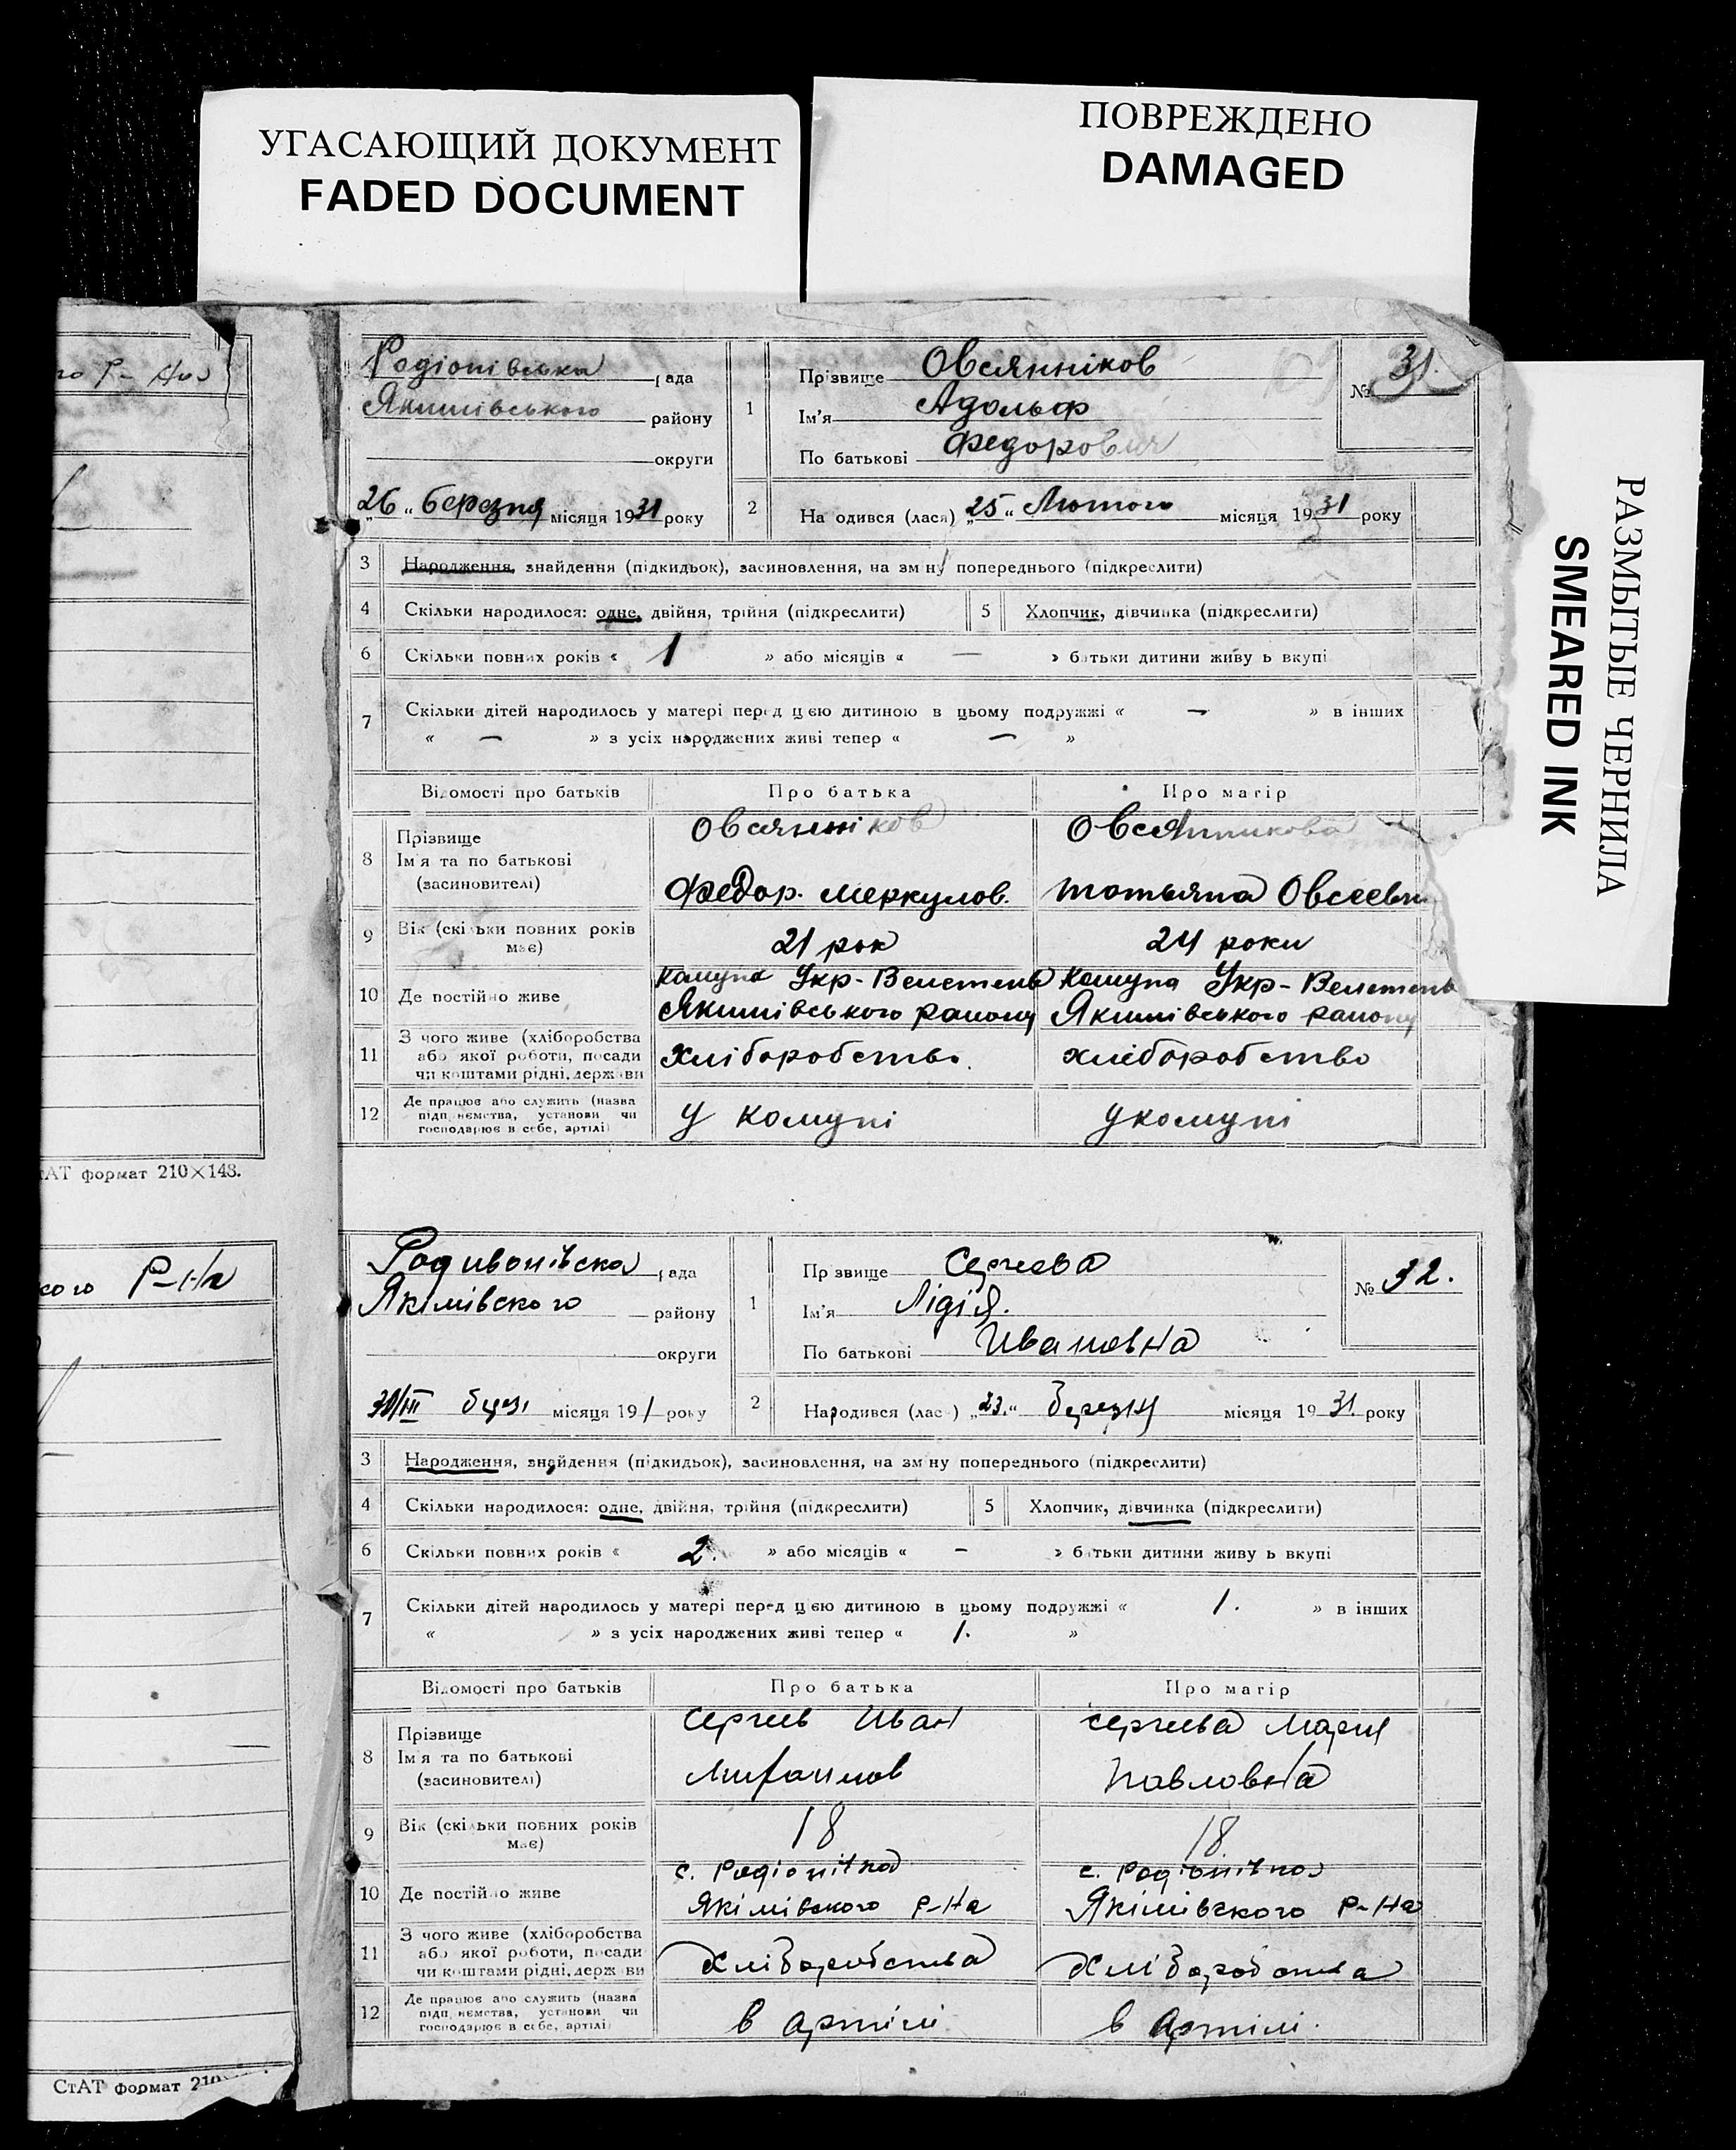 УГАСАЮЩИЙ ДОКУМЕНТ
FADED DOCUMENT
ПОВРЕЖДЕНО
DAMAGED
РАЗМЫТЫЕ ЧЕРНИЛА
SMEARED INK
го Р-на
ТАТ формат 210×148.
кого Р-на
СтАТ формат 210
Родіонівська рада
Якимівського району
округи
„26“ березня місяця 1931 року
1 Прізвище Овсянніков
Ім'я Адольф
По батькові Федорович
№ 31.
2 На одився (лася) „25“ Лютого місяця 1931 року
3 Народження, знайдення (підкидьок), засиновлення, на зміну попереднього (підкреслити)
4 Скільки народилося: одне, двійня, трійня (підкреслити) 5 Хлопчик, дівчинка (підкреслити)
6 Скільки повних років « 1 » або місяців « — » батьки дитини живуть вкупі
7 Скільки дітей народилось у матері перед цією дитиною в цьому подружжі « — » в інших
« — » з усіх народжених живі тепер « — »
Відомості про батьків Про батька Про матір
8 Прізвище Овсянніков Овсянникова
Ім'я та по батькові
(засиновителі) Федор. Меркулов. Татьяна Овсеевн
9 Вік (скільки повних років має) 21 рок 24 роки
10 Де постійно живе Комуна Укр-Велетень Комуна Укр-Велетень
Якимівського району Якимівського району
11 З чого живе (хліборобства
або якої роботи, посади Хліборобство. хліборобство
чи коштами рідні, держави
12 Де працює або служить (назва
підприємства, установи чи У комуні У комуні
господарює в себе, артілі)
Родивонівска рада
Якімівского району
округи
30/III берез. місяця 191 року
1 Прізвище Сергеева
Ім'я Лідія.
По батькові Ивановна
№ 32.
2 Народився (лас ) „23.“ березня місяця 1931. року
3 Народження, знайдення (підкидьок), засиновлення, на зміну попереднього (підкреслити)
4 Скільки народилося: одне, двійня, трійня (підкреслити) 5 Хлопчик, дівчинка (підкреслити)
6 Скільки повних років « 2. » або місяців « – » батьки дитини живуть вкупі
7 Скільки дітей народилось у матері перед цією дитиною в цьому подружжі « 1. » в інших
« » з усіх народжених живі тепер « 1. »
Відомості про батьків Про батька Про матір
8 Прізвище Сергеев Иван Сергеева Мария
Ім'я та по батькові
(засиновителі) Павловна
9 Вік (скільки повних років має) 18 18
10 Де постійно живе с. Родіонівка с. Родіонівка
Якімівского р-на Якімівского р-на
11 З чого живе (хліборобства
або якої роботи, посади Хліборобства Хліборобства
чи коштами рідні, держави
12 Де працює або служить (назва
підприємства, установи чи в артілі в артілі.
господарює в себе, артілі)